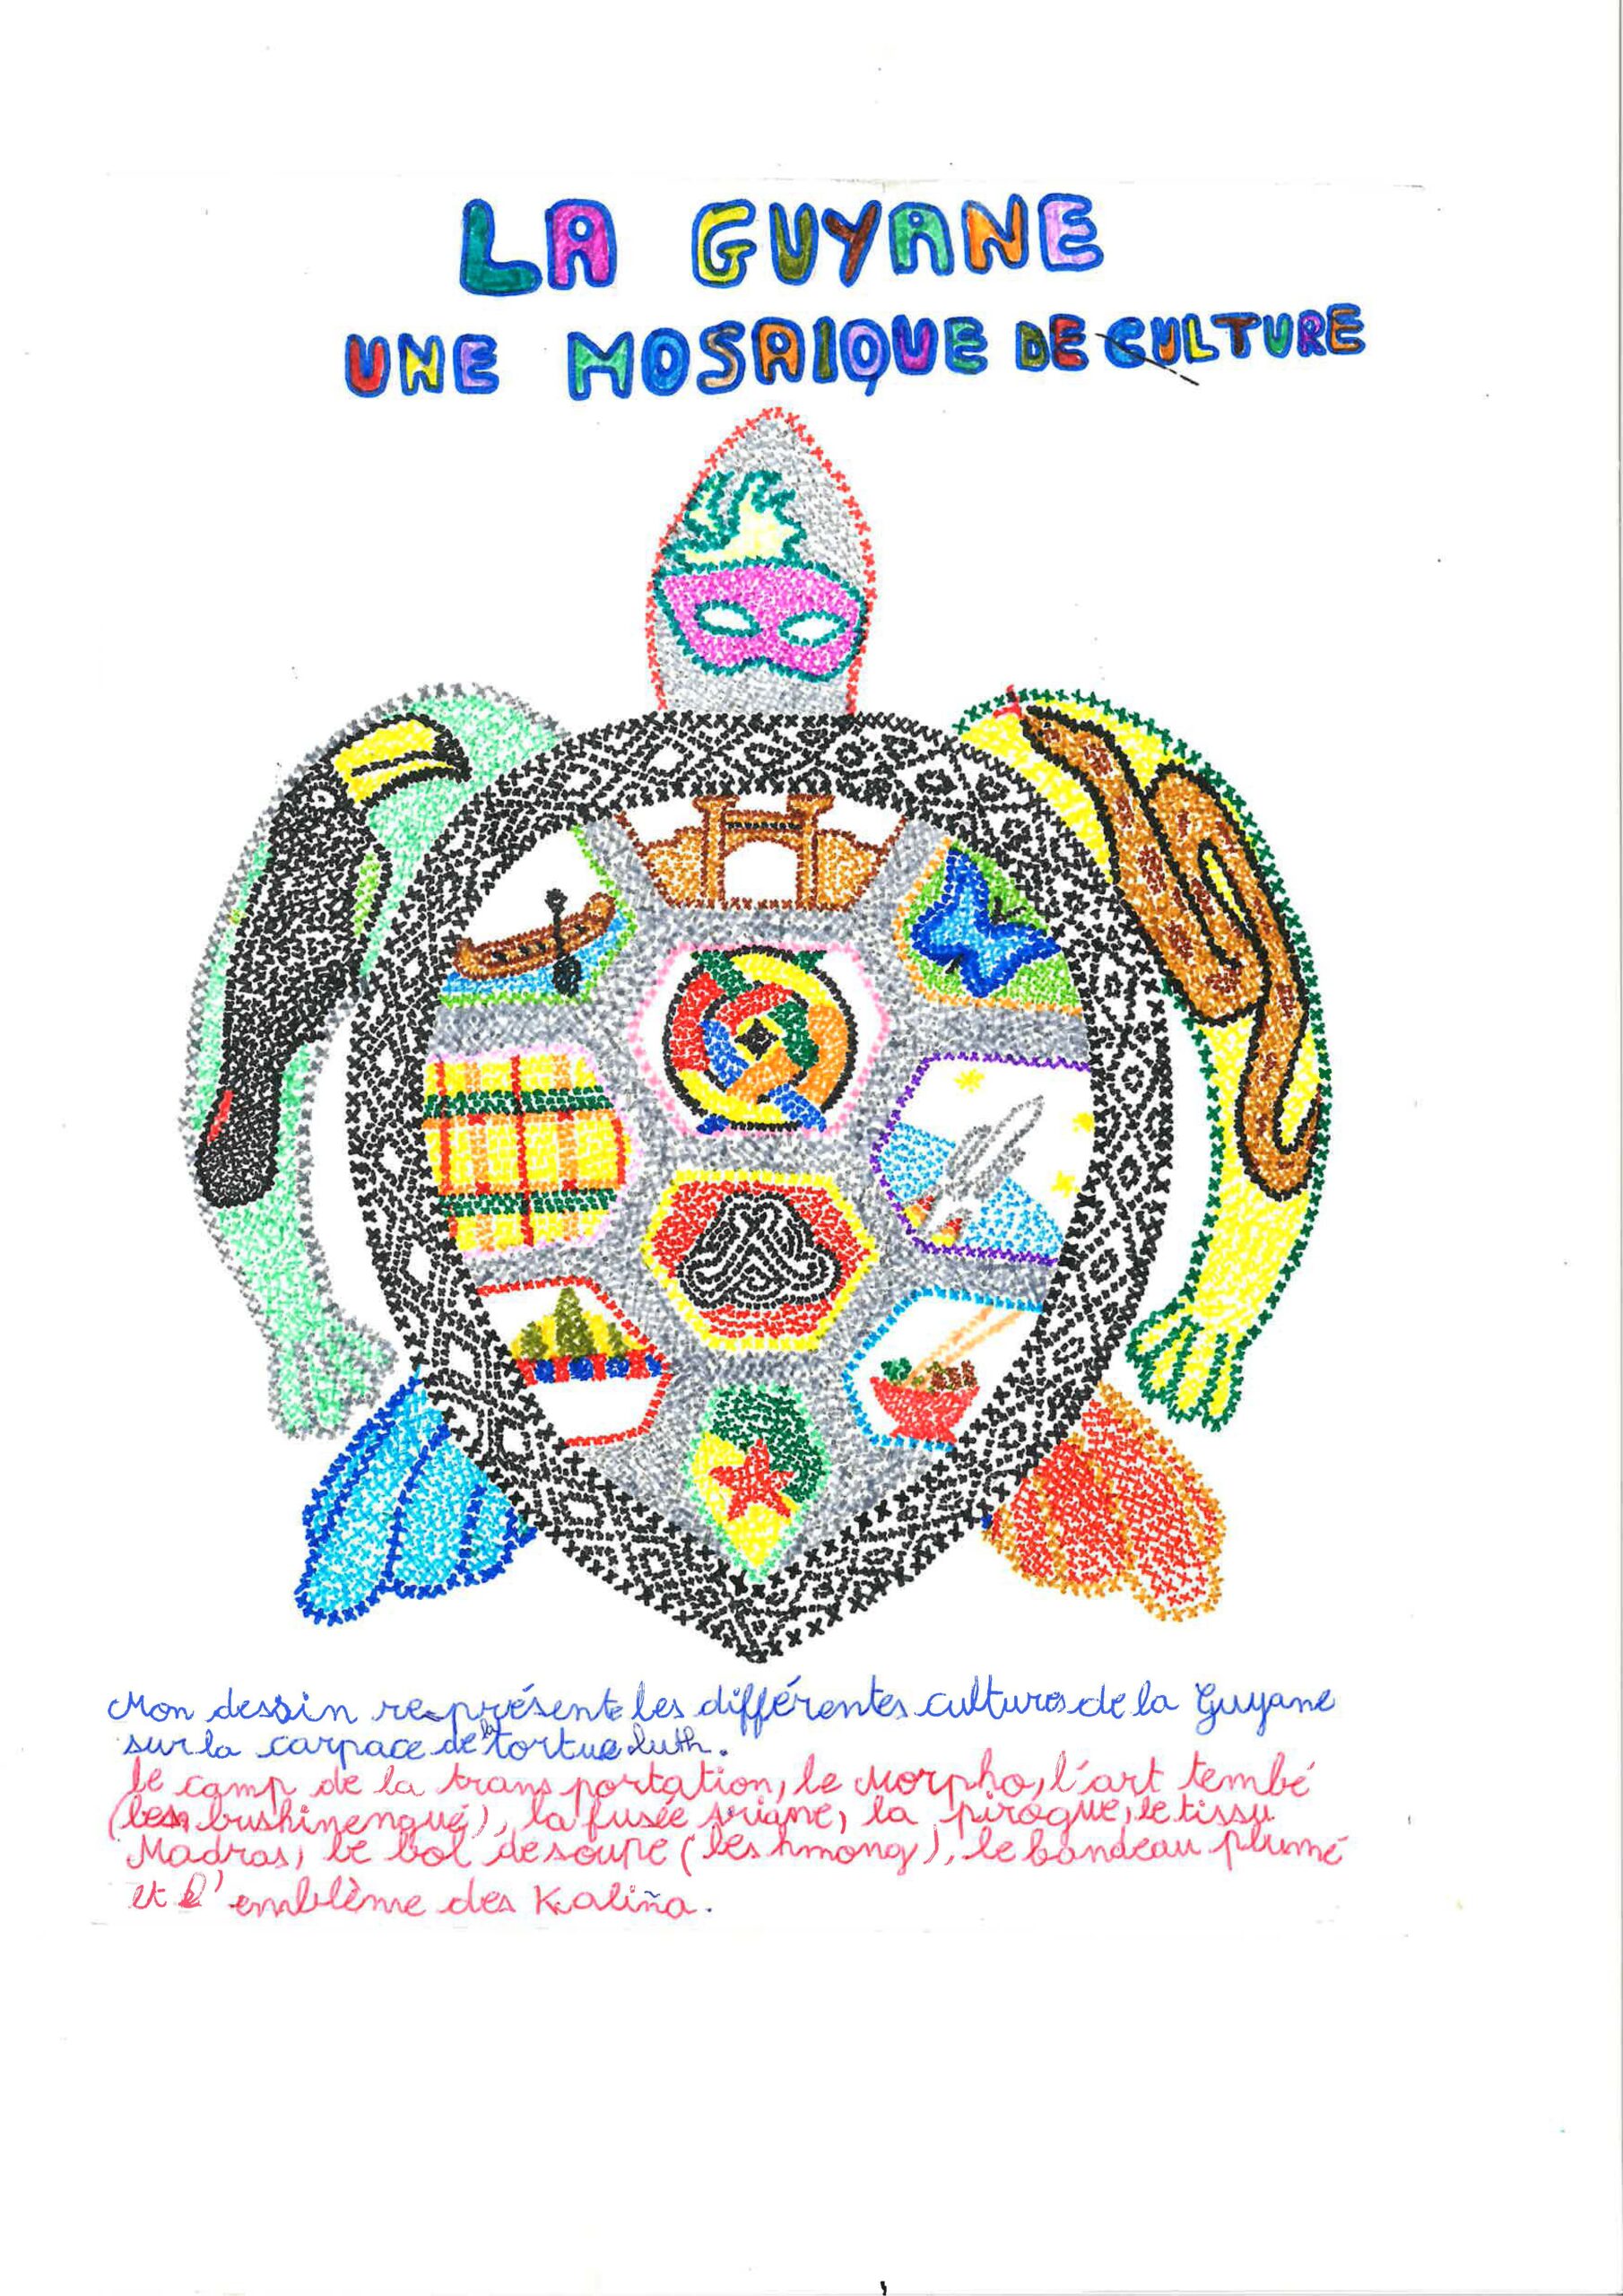 LA GUYANE
UNE MOSAIQUE DE CULTURE
Mon dessin représente les différentes cultures de la Guyane
sur la carpace de la tortue luth.
le camp de la transportation, le Morpho, l'art tembé
(les bushinengué), la fusée Ariane, la pirogue, le tissu
Madras, le bol de soupe (les hmong), le bandeau plumé
et l'emblème des Kaliña.